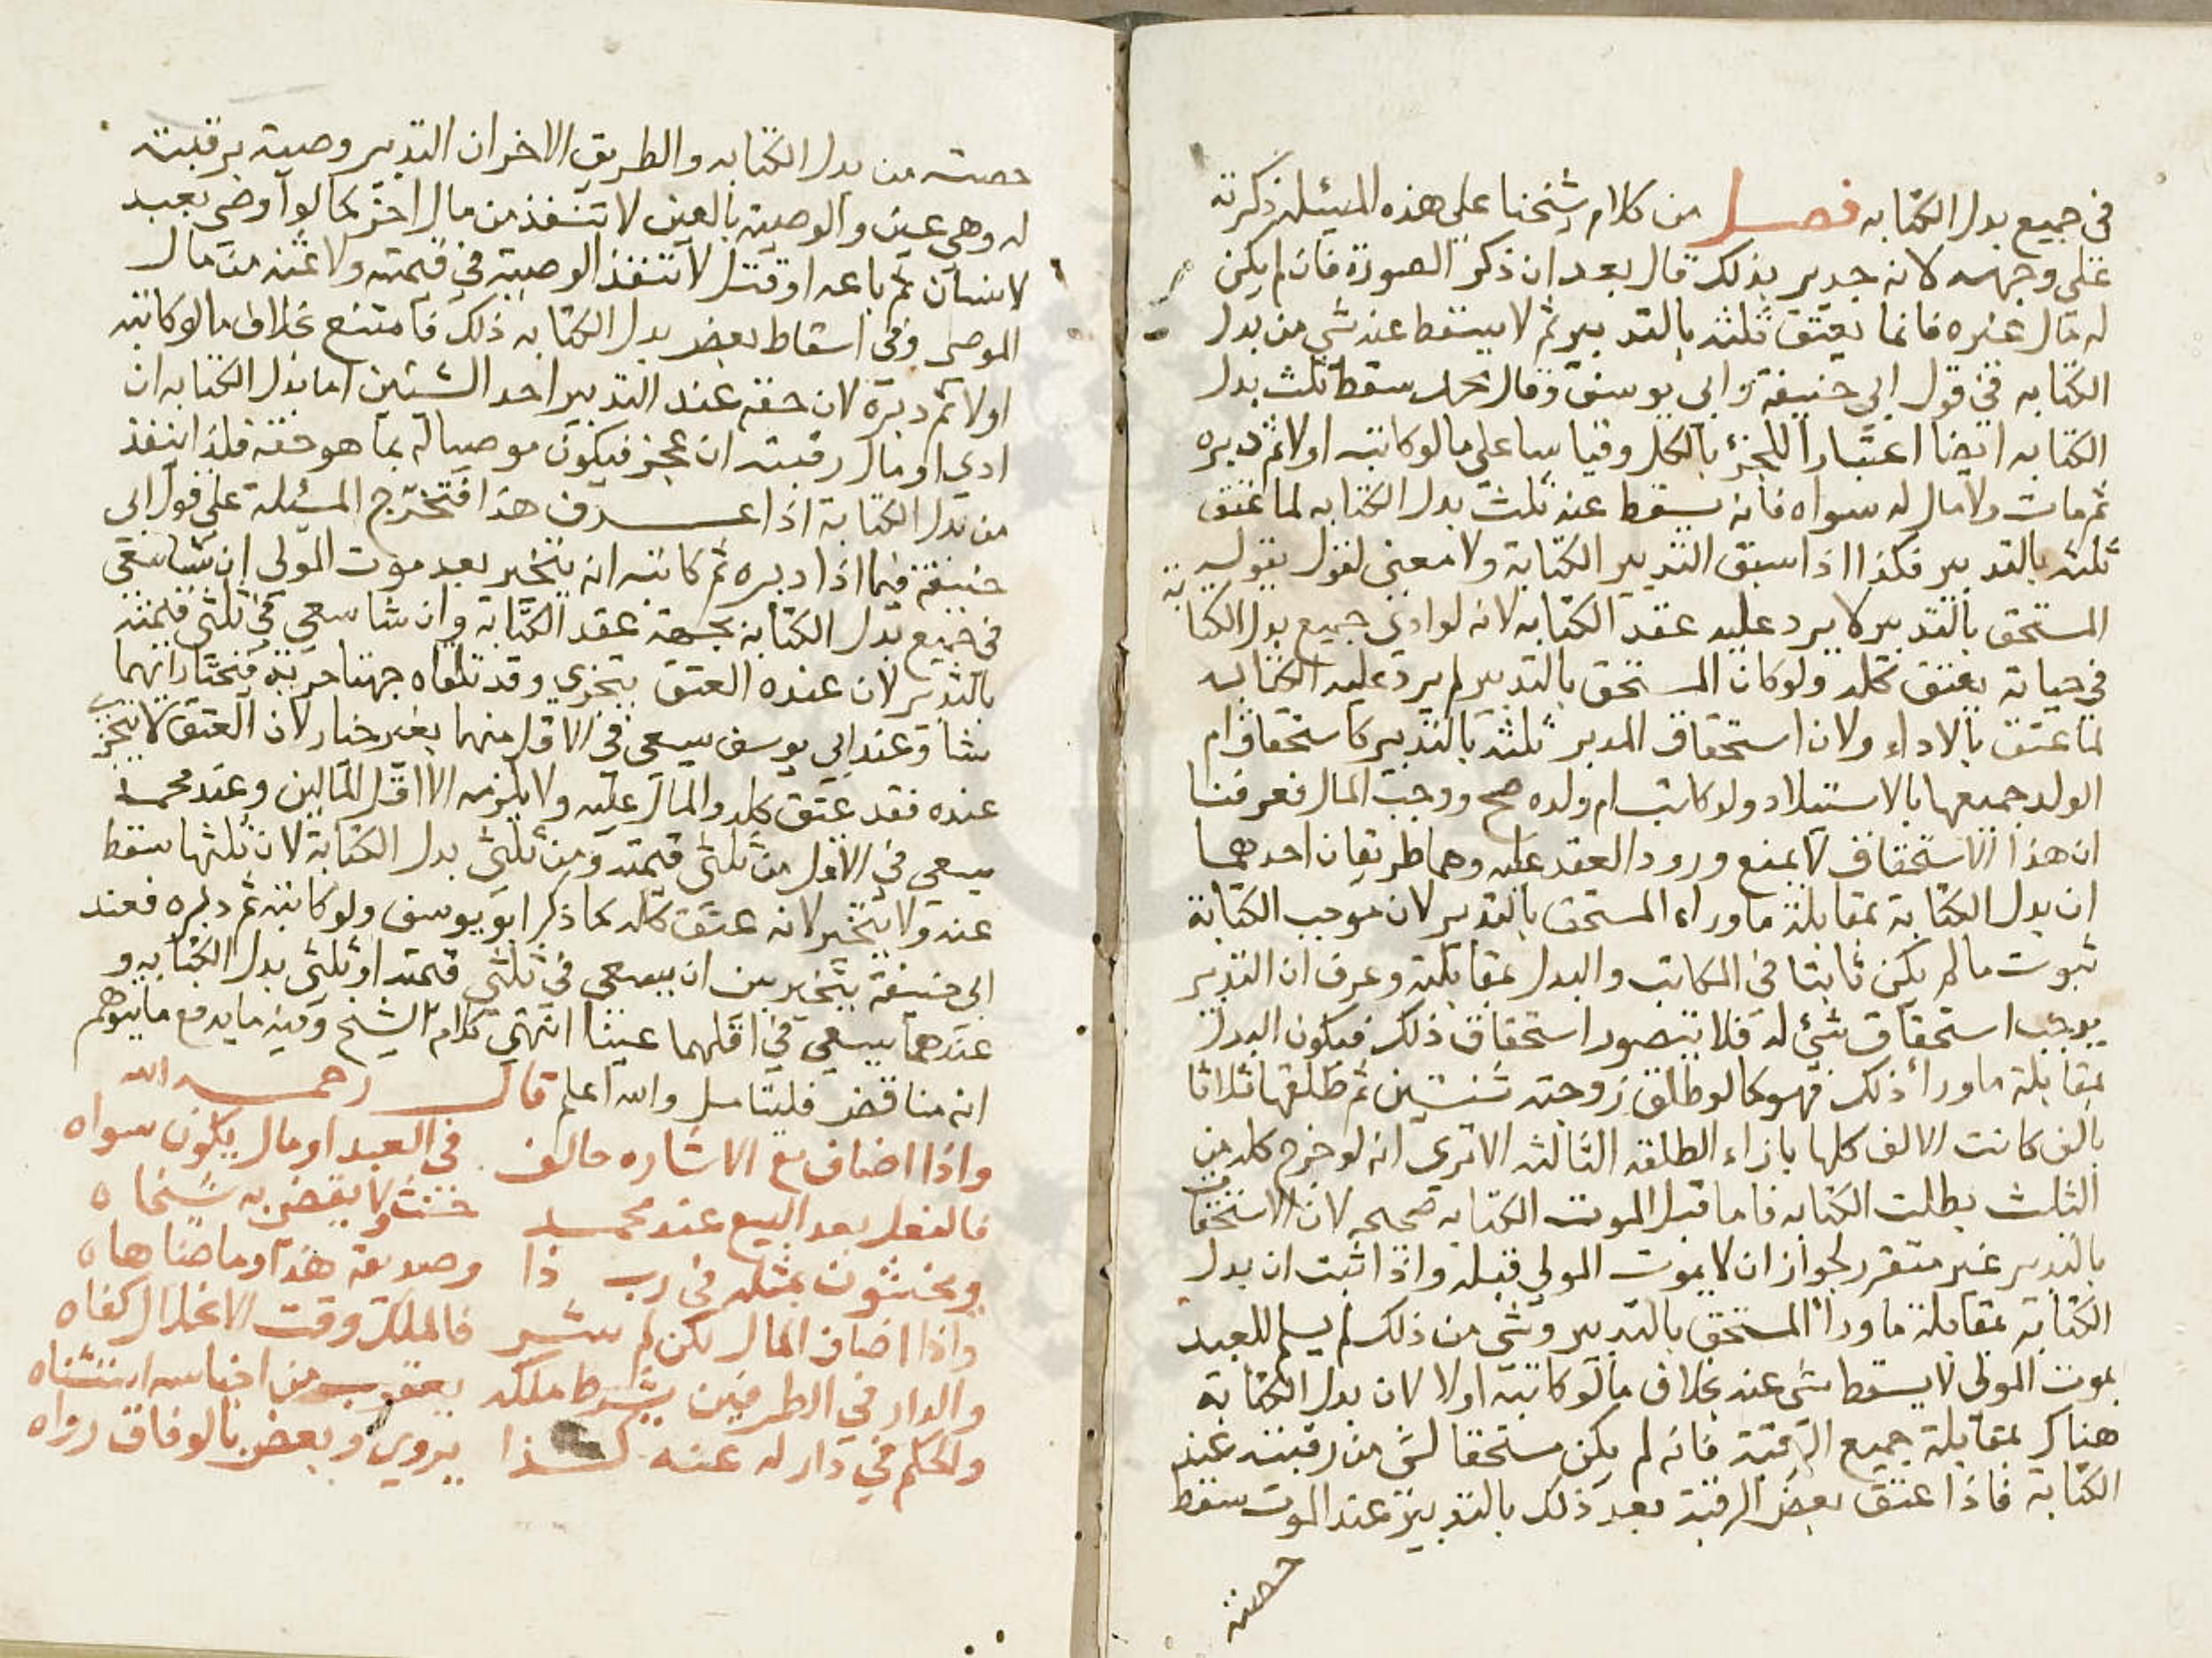 في جميع بدل الكتابه فصل من كلام شيخنا علي هذه المسئله ذكرته
علي وجهه لانه جدير بذلك قال بعد ان ذكر الصورة فان لم يكن
له مال غيره فانما يعتق ثلثه بالتدبير ثم لا يسقط عنه شي من بدل
الكتابه في قول ابي حنيفة وابي يوسف وقال محمد سقط ثلث بدل
الكتابه ايضا اعتبارا للجزء بالكل وقياسا علي ما لو كاتبه اولا ثم دبره
ثم مات ولا مال له سواه فانه يسقط عنه ثلث بدل الكتابه لما عتق
ثلثه بالتدبير فكذا اذا سبق التدبير الكتابة ولا معني لقول يقول
المستحق بالتدبير لا يرد عليه عقد الكتابه لانه لو ادي جميع بدل الكتابة
في حياته يعتق كله ولو كان المستحق بالتدبير لم يرد عليه الكتابه
لما عتق بالاداء ولان استحقاق المدبر ثلثه بالتدبير كاستحقاق ام
الولد جميعها بالاستيلاد ولو كاتب ام ولده صح ووجب المال فعرفنا
ان هذا الاستحقاق لا يمنع ورود العقد عليه وهما طريقان احدهما
ان بدل الكتابة بمقابلة ما وراء المستحق بالتدبير لان موجب الكتابة
ثبوت ما لم يكن ثابتا في المكاتب والبدل بمقابلته وعرف ان التدبير
يوجب استحقاق شئ له فلا يتصور استحقاق ذلك فيكون البدل
بمقابلة ما ورأ ذلك فهو كما لو طلق زوجته ثنتين ثم طلقها ثلاثا
بالف كانت الالف كلها بازاء الطلقه الثالثه الا تري انه لو خرج كله من
الثلث بطلت الكتابه فاما قبل الموت الكتابه صحيحه لان الاستحقاق
بالتدبير غير متقرر لجواز ان لا يموت المولي قبله واذا ثبت ان بدل
الكتابة بمقابلة ما ورأ المستحق بالتدبير وشي من ذلك لم يسلم للعبد
بموت المولي لا يسقط شي عنه بخلاف ما لو كاتبه اولا لان بدل الكتابة
هناك بمقابلة جميع الرقبة فانه لم يكن مستحقا لشي من رقبته عند
الكتابة فاذا عتق بعض الرقبة بعد ذلك بالتدبير عند الموت سقط
حصته
حصته من بدل الكتابه والطريق الاخر ان التدبير وصية برقبته
له وهي عين والوصية بالعين لا تنفذ من مال اخر كما لو اوصي بعبد
لانسان ثم باعه او قتل لا تنفذ الوصية في قيمته ولا ثمنه من مال
الموصي وفي اسقاط بعض بدل الكتابه ذلك فامتنع بخلاف ما لو كاتبه
اولا ثم دبره لان حقه عند التدبير احد الشيئين اما بدل الكتابه ان
ادي او مال رقبته ان عجز فيكون موصيا له بما هو حقه فلذا ينفذ
من بدل الكتابة اذا عرف هذا فتخرج المسئلة علي قول ابي
حنيفة فيما اذا دبره ثم كاتبه انه يتخير بعد موت المولي ان شا سعي
في جميع بدل الكتابة بجهة عقد الكتابة وان شا سعي في ثلثي قيمته
بالتدبير لان عنده العتق يتجزي وقد تلقاه جهتا حرية فيختار ايهما
شا وعند ابي يوسف يسعي في الاقل منهما بغير خيار لان العتق لا يتجزي
عنده فقد عتق كله والمال عليه ولا يلزمه الا اقل المالين وعند محمد
يسعي في الاقل من ثلثي قيمته ومن ثلثي بدل الكتابة لان ثلثها سقط
عنه ولا يتخير لانه عتق كله كما ذكر ابو يوسف ولو كاتبه ثم دبره فعند
ابي حنيفة يتخير بين ان يسعي في ثلثي قيمته او ثلثي بدل الكتابه و
عندهما يسعي في اقلهما عينا انتهي كلام الشيخ وفيه ما يدفع ما يتوهم
انه مناقض فليتامل والله اعلم قال رحمه الله
واذا اضاف مع الاشاره حالف في العبد او مال يكون سواه
فالفعل بعد البيع عند محمد حنث ولا يقضي به شيخاه
ويحنثون بمثله في رب ذا وصديقة هذا وما ضاهاه
واذا اضاف المال لكن لم يشر فالملك وقت الانحلال كفاه
والدار في الطرفين يشرط ملكه يعقوب من اجناسه استثناه
والحكم في دار له عنه كذا يروي وبعض بالوفاق رواه